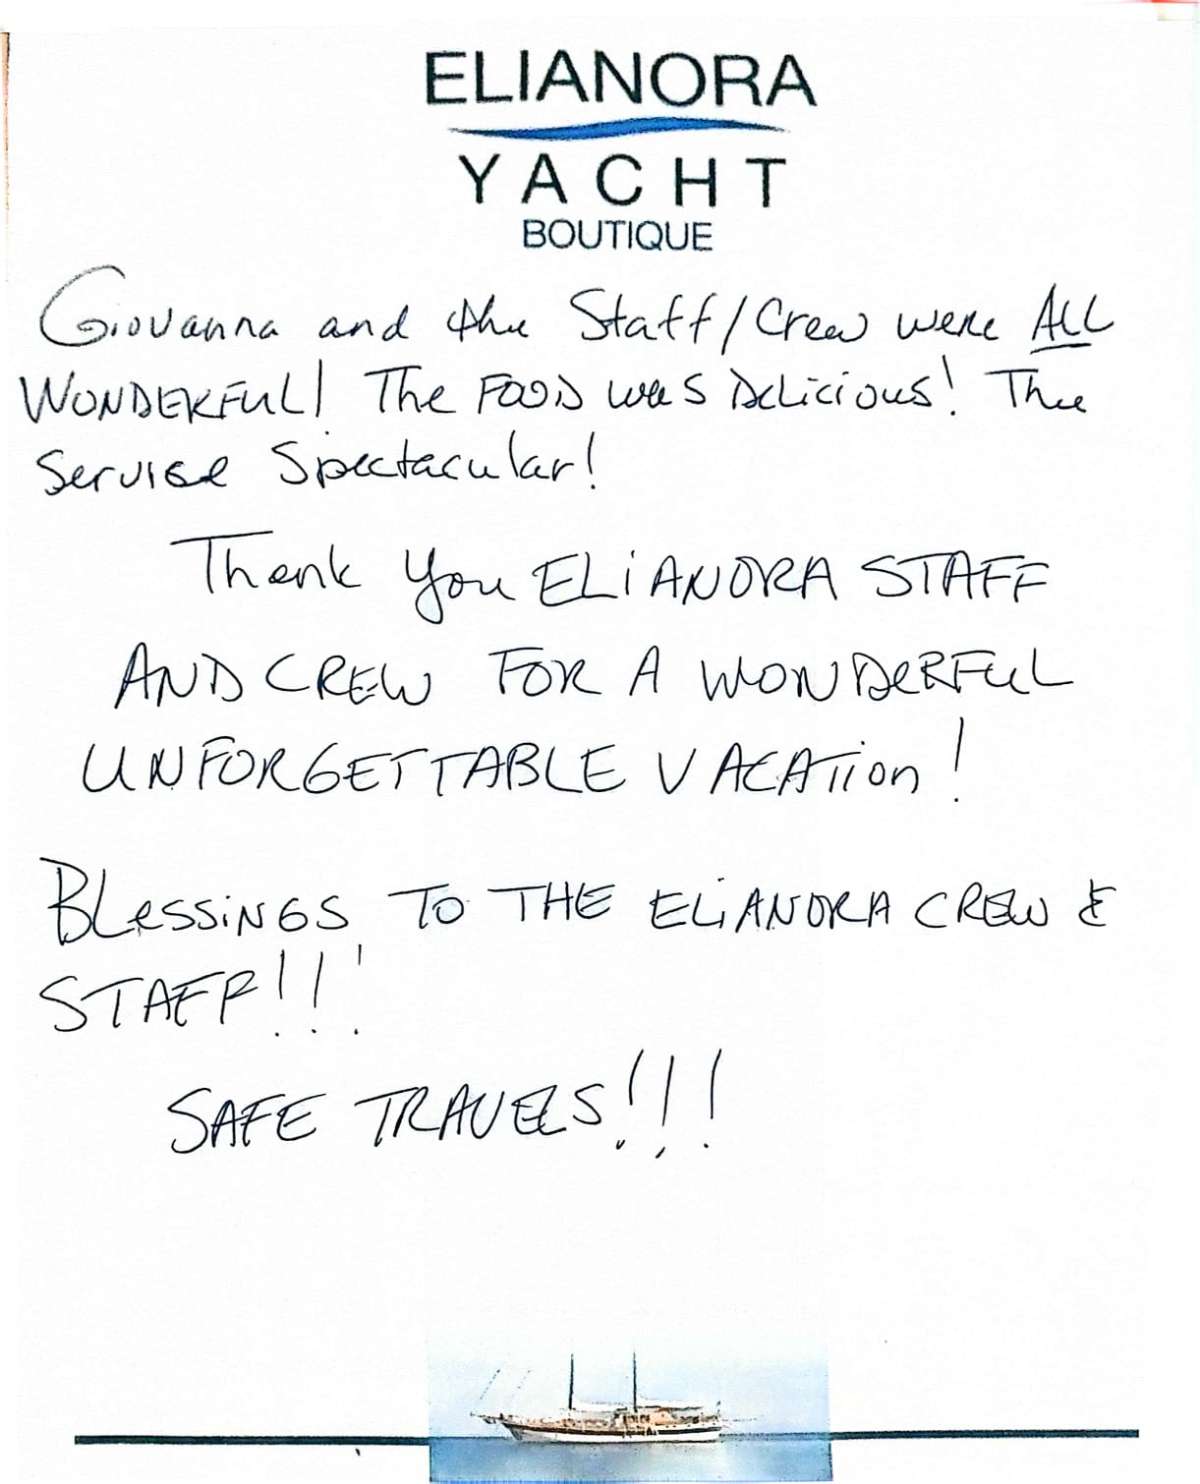 ELIANORA
YACHT
BOUTIQUE
Giovanna and the Staff/Crew were ALL
WONDERFUL! The FOOD was Delicious! The
Service Spectacular!
Thank you ELiANORA STAFF
AND CREW FOR A WONDERFUL
UNFORGETTABLE VACATion!
BLessiNGS TO THE ELiANORA CREW &
STAFF!!!
SAFE TRAVELS!!!